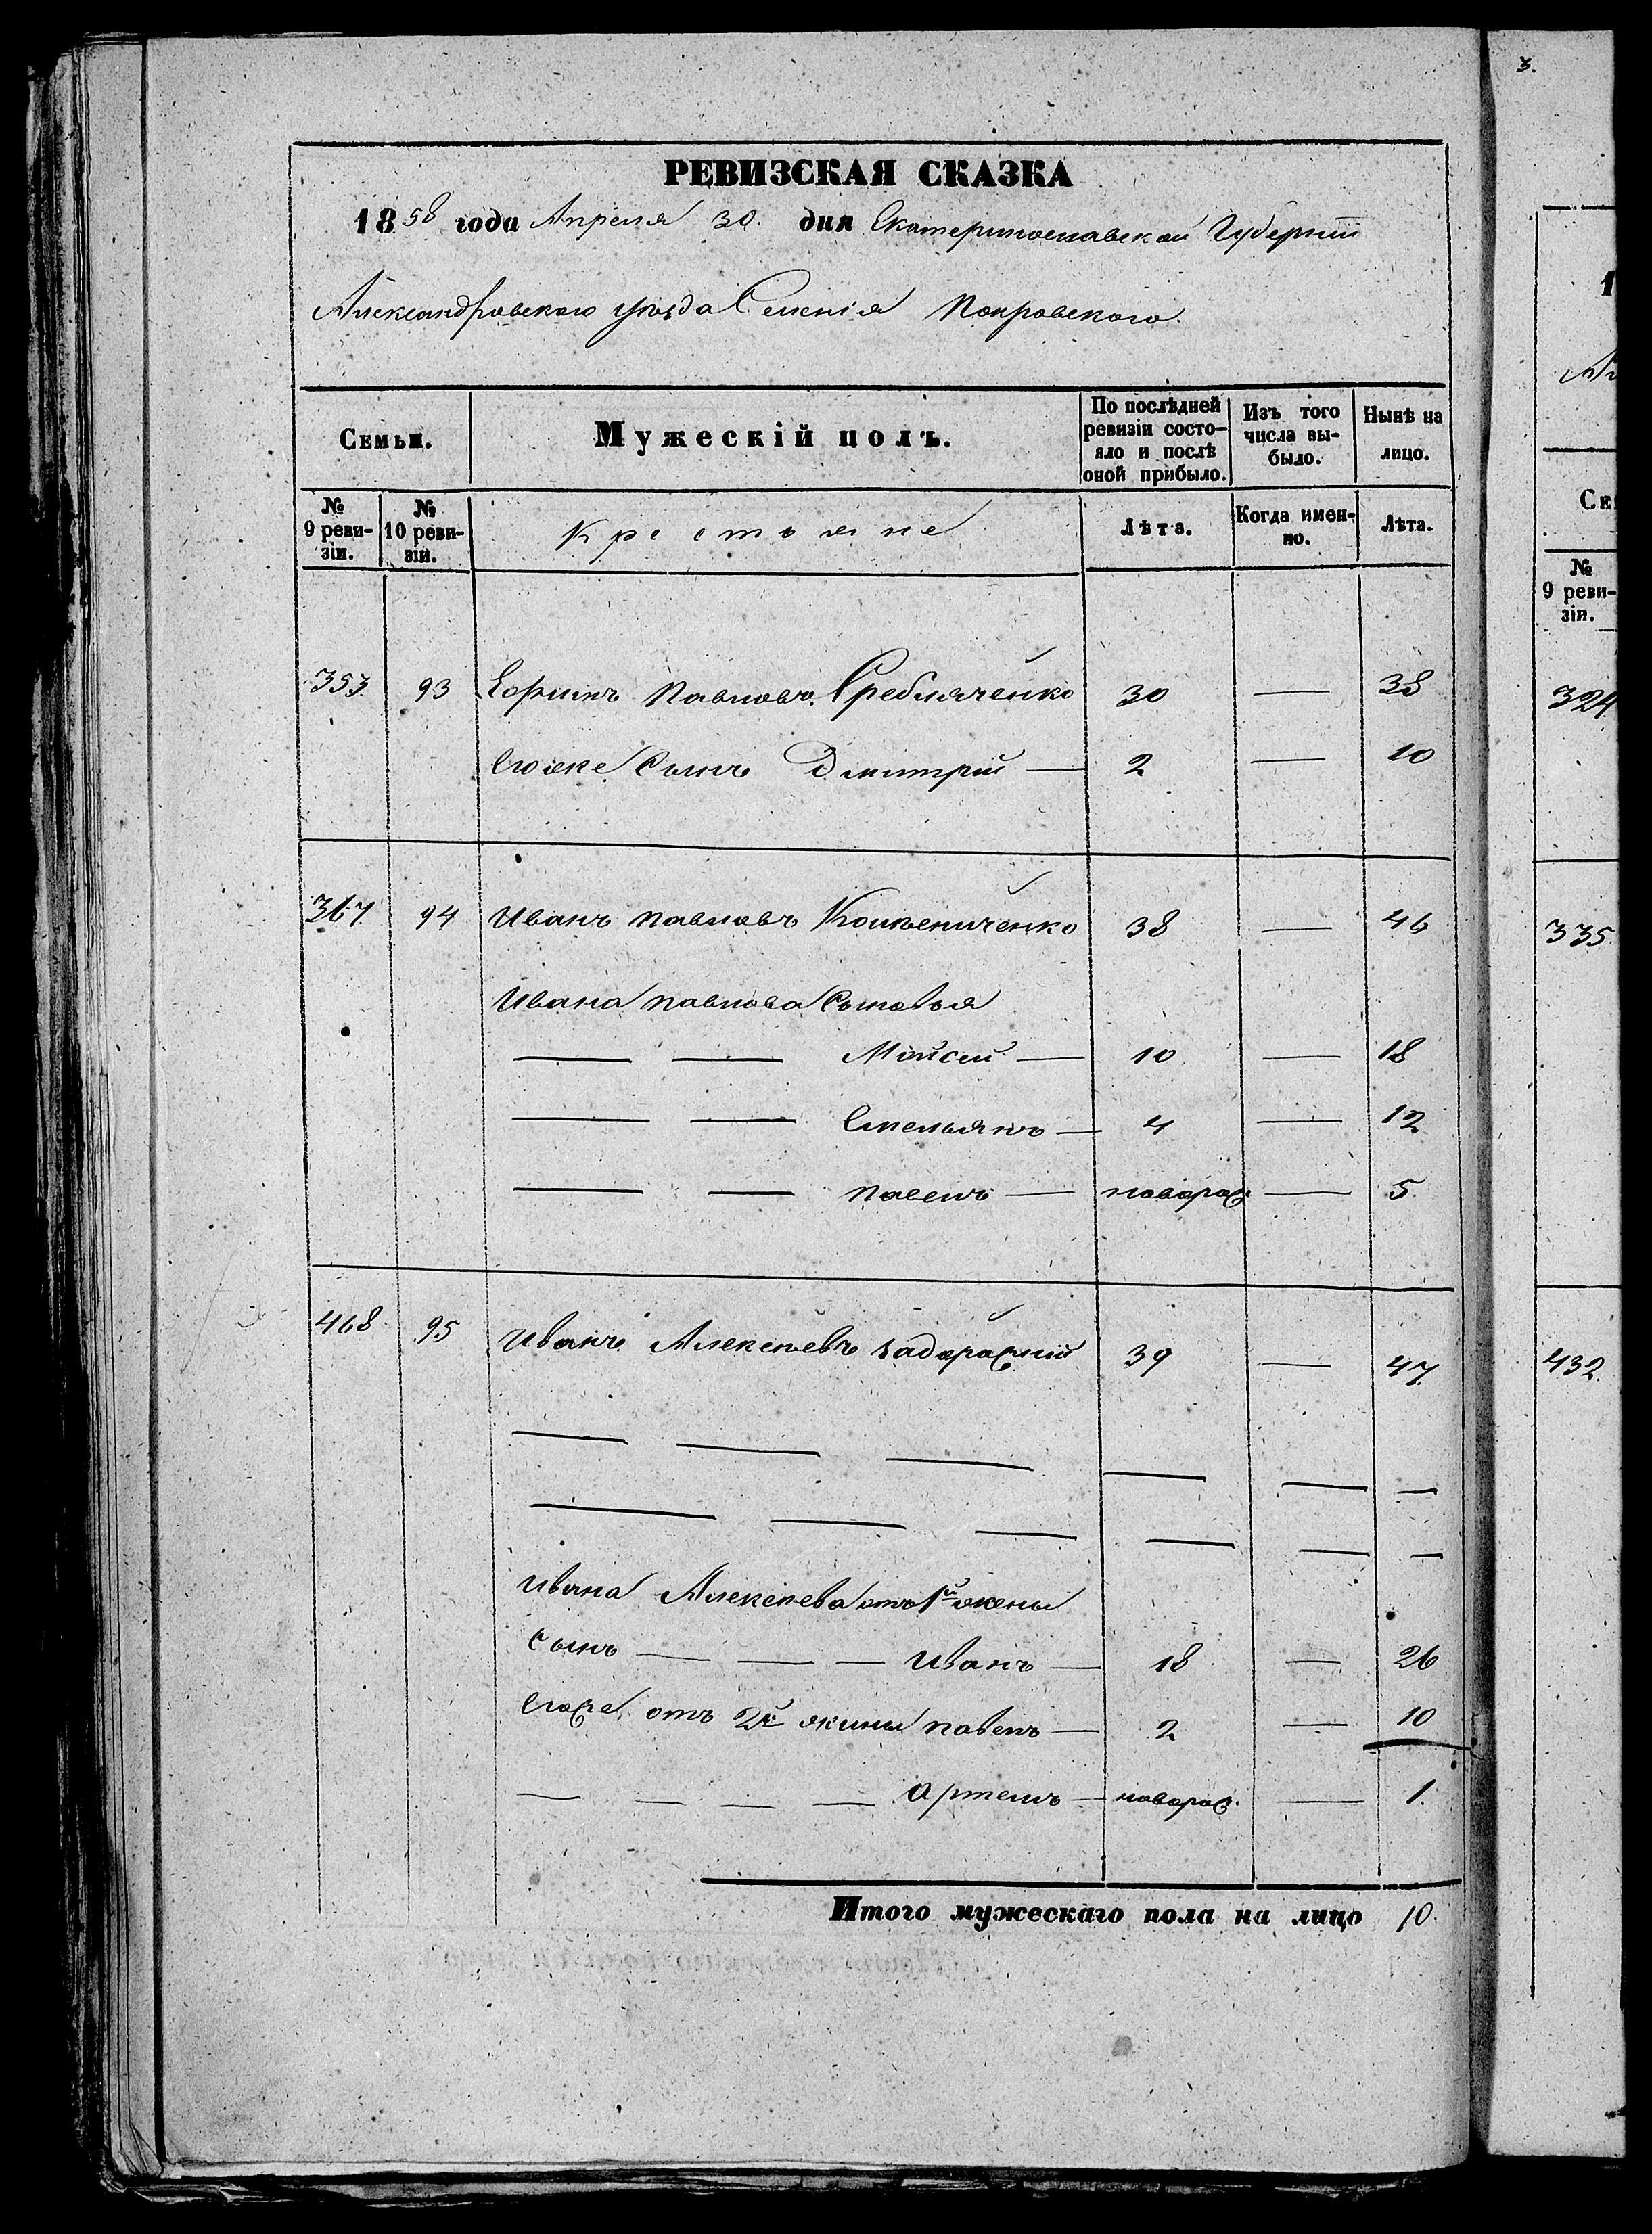 3.
РЕВИЗСКАЯ СКАЗКА
1858 года Апреля 30. дня Екатеринославской Губерніи
Александровского уѣзда Селенія Покровского.
Семьи.
Мужескій полъ.
По послѣдней ревизіи состо-
яло и послѣ оной прибыло.
Изъ того числа вы-
было.
Нынѣ на лицо.
№ 9 реви-
зіи.
№ 10 реви-
зіи.
Крестьяне
Лѣта.
Когда имен-
но.
Лѣта.
353 93 Ефимъ Павловъ Гребляченко 30 — 38
Егоже Сынъ Дмитрій — 2 — 10
367 94 Иванъ Павловъ 38 — 46
Ивана Павлова Сыновья
— — Мойсей — 10 — 18
— — Емельянъ — 4 — 12
— — Павелъ — новорож — 5
468 95 Иванъ Алексѣевъ Задорожній 39 — 47
— — — — — —
— — — — — —
Ивана Алексѣева отъ 1й жены
Сынъ — — — Иванъ — 18 — 26
Егоже отъ 2й жины Павелъ — 2 — 10
— — — — Артемъ — новорож. — 1.
Итого мужескаго пола на лицо 10.
1
Се
№
9 реви-
зіи.
324
335.
432.